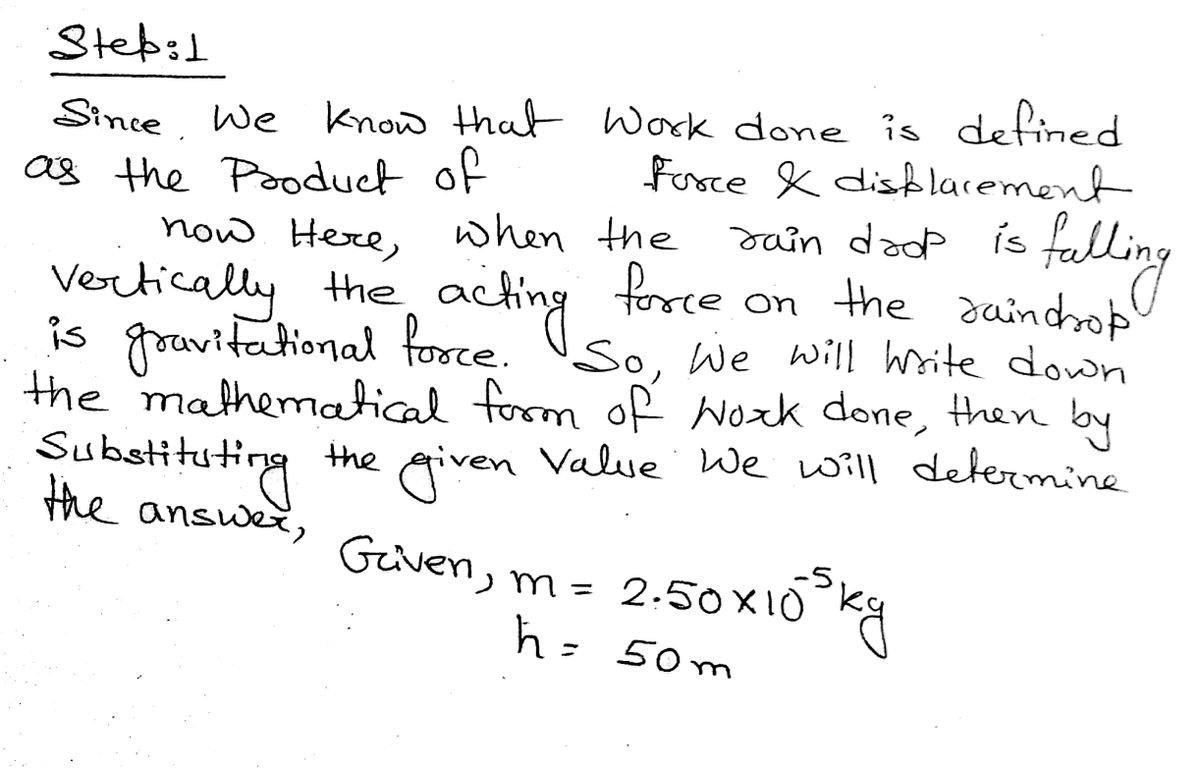 Step:1
Since, We know that Work done is defined
as the Product of Force & displacement
now Here, when the rain drop is falling
Vertically the acting force on the raindrop
is gravitational force. So, We will Write down
the mathematical form of Work done, then by
Substituting the given Value We will determine
the answer,
Given, m = 2.50 × 10⁻⁵ kg
h = 50 m